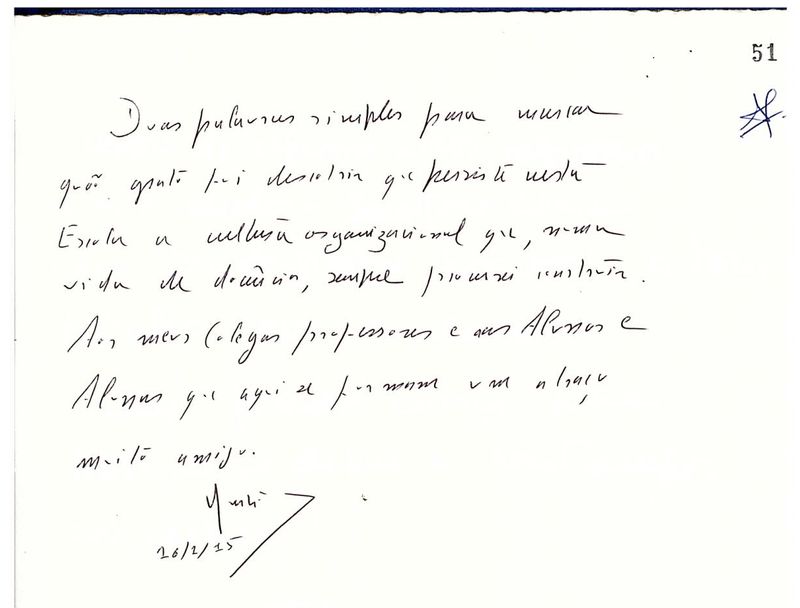 51
Duas palavras simples para marcar
quão grato foi descobrir que persiste nesta
Escola a cultura organizacional que, numa
vida de docência, sempre procurei construir.
Aos meus Colegas professores e aos Alunos e
Alunas que aqui se formam um abraço
muito amigo.